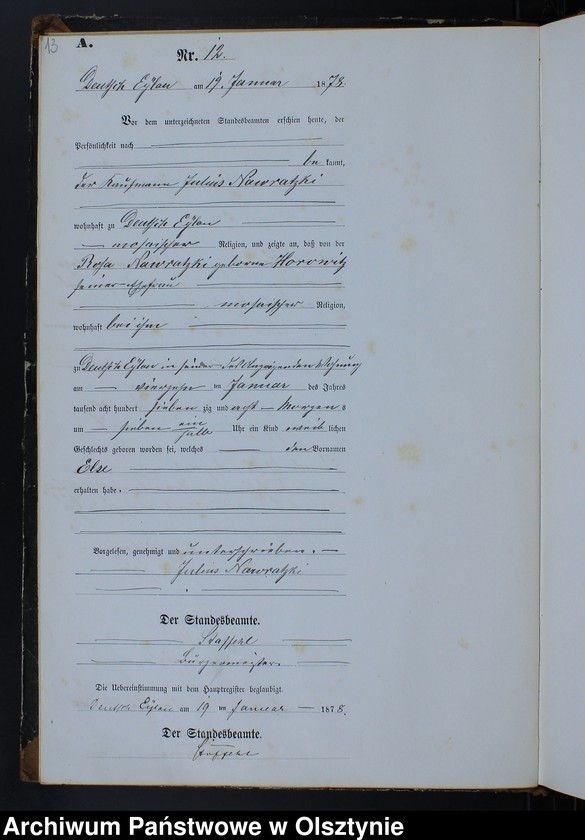 13
A.
Nr. 12.
Deutsch Eylau am 19. Januar 1878.
Vor dem unterzeichneten Standesbeamten erschien heute, der
Persönlichkeit nach
be kannt,
der Kaufmann Julius Nawratzki
wohnhaft zu Deutsch Eylau
mosaischer Religion, und zeigte an, daß von der
Rosa Nawratzki geborene Horowitz
seiner Ehefrau
mosaischer Religion,
wohnhaft bei ihm
zu Deutsch Eylau in seiner des Anzeigenden Wohnung
am vierzehn ten Januar des Jahres
tausend acht hundert sieben zig und acht Morgens
um sieben ein halb Uhr ein Kind weib lichen
Geschlechts geboren worden sei, welches den Vornamen
Else
erhalten habe.
Vorgelesen, genehmigt und unterschrieben.
Julius Nawratzki
Der Standesbeamte.
Bürgermeister.
Die Uebereinstimmung mit dem Hauptregister beglaubigt.
Deutsch Eylau am 19 ten Januar 1878.
Der Standesbeamte.
Archiwum Państwowe w Olsztynie